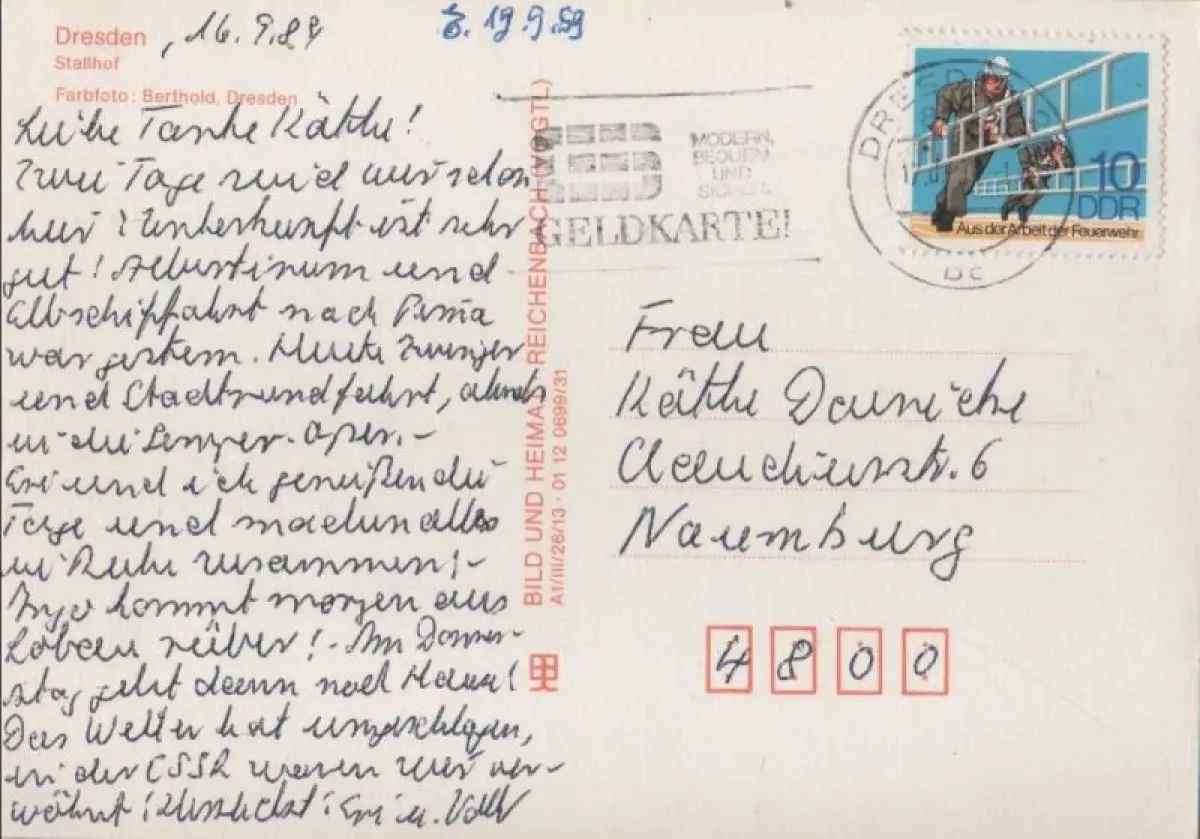 Dresden, 16.9.89
Stallhof
Farbfoto: Berthold, Dresden
E. 19.9.89
Liebe Tante Käthe!
Zwei Tage sind wir schon
hier! Unterkunft ist sehr
gut! Albertinum und
Elbschiffahrt nach Pirna
war gestern. Heute Zwinger
und Stadtrundfahrt, abends
in die Semper-Oper.-
Evi und ich genießen die
Tage und machen alles
in Ruhe zusammen!-
Ingo kommt morgen aus
Löbau rüber!- Am Donner-
stag geht dann nach Haus!
Das Wetter hat umgeschlagen,
in der CSSR waren wir ver-
wöhnt! Herzlichst! Evi u.
BILD UND HEIMAT REICHENBACH (VOGTL)
A1/III/26/13 · 01 12 0699/31
MODERN,
BEQUEM
UND
SICHER!
GELDKARTE!
DRESDEN
bc
10
DDR
Aus der Arbeit der Feuerwehr
Frau
Käthe
Claudiusstr. 6
Naumburg
4800